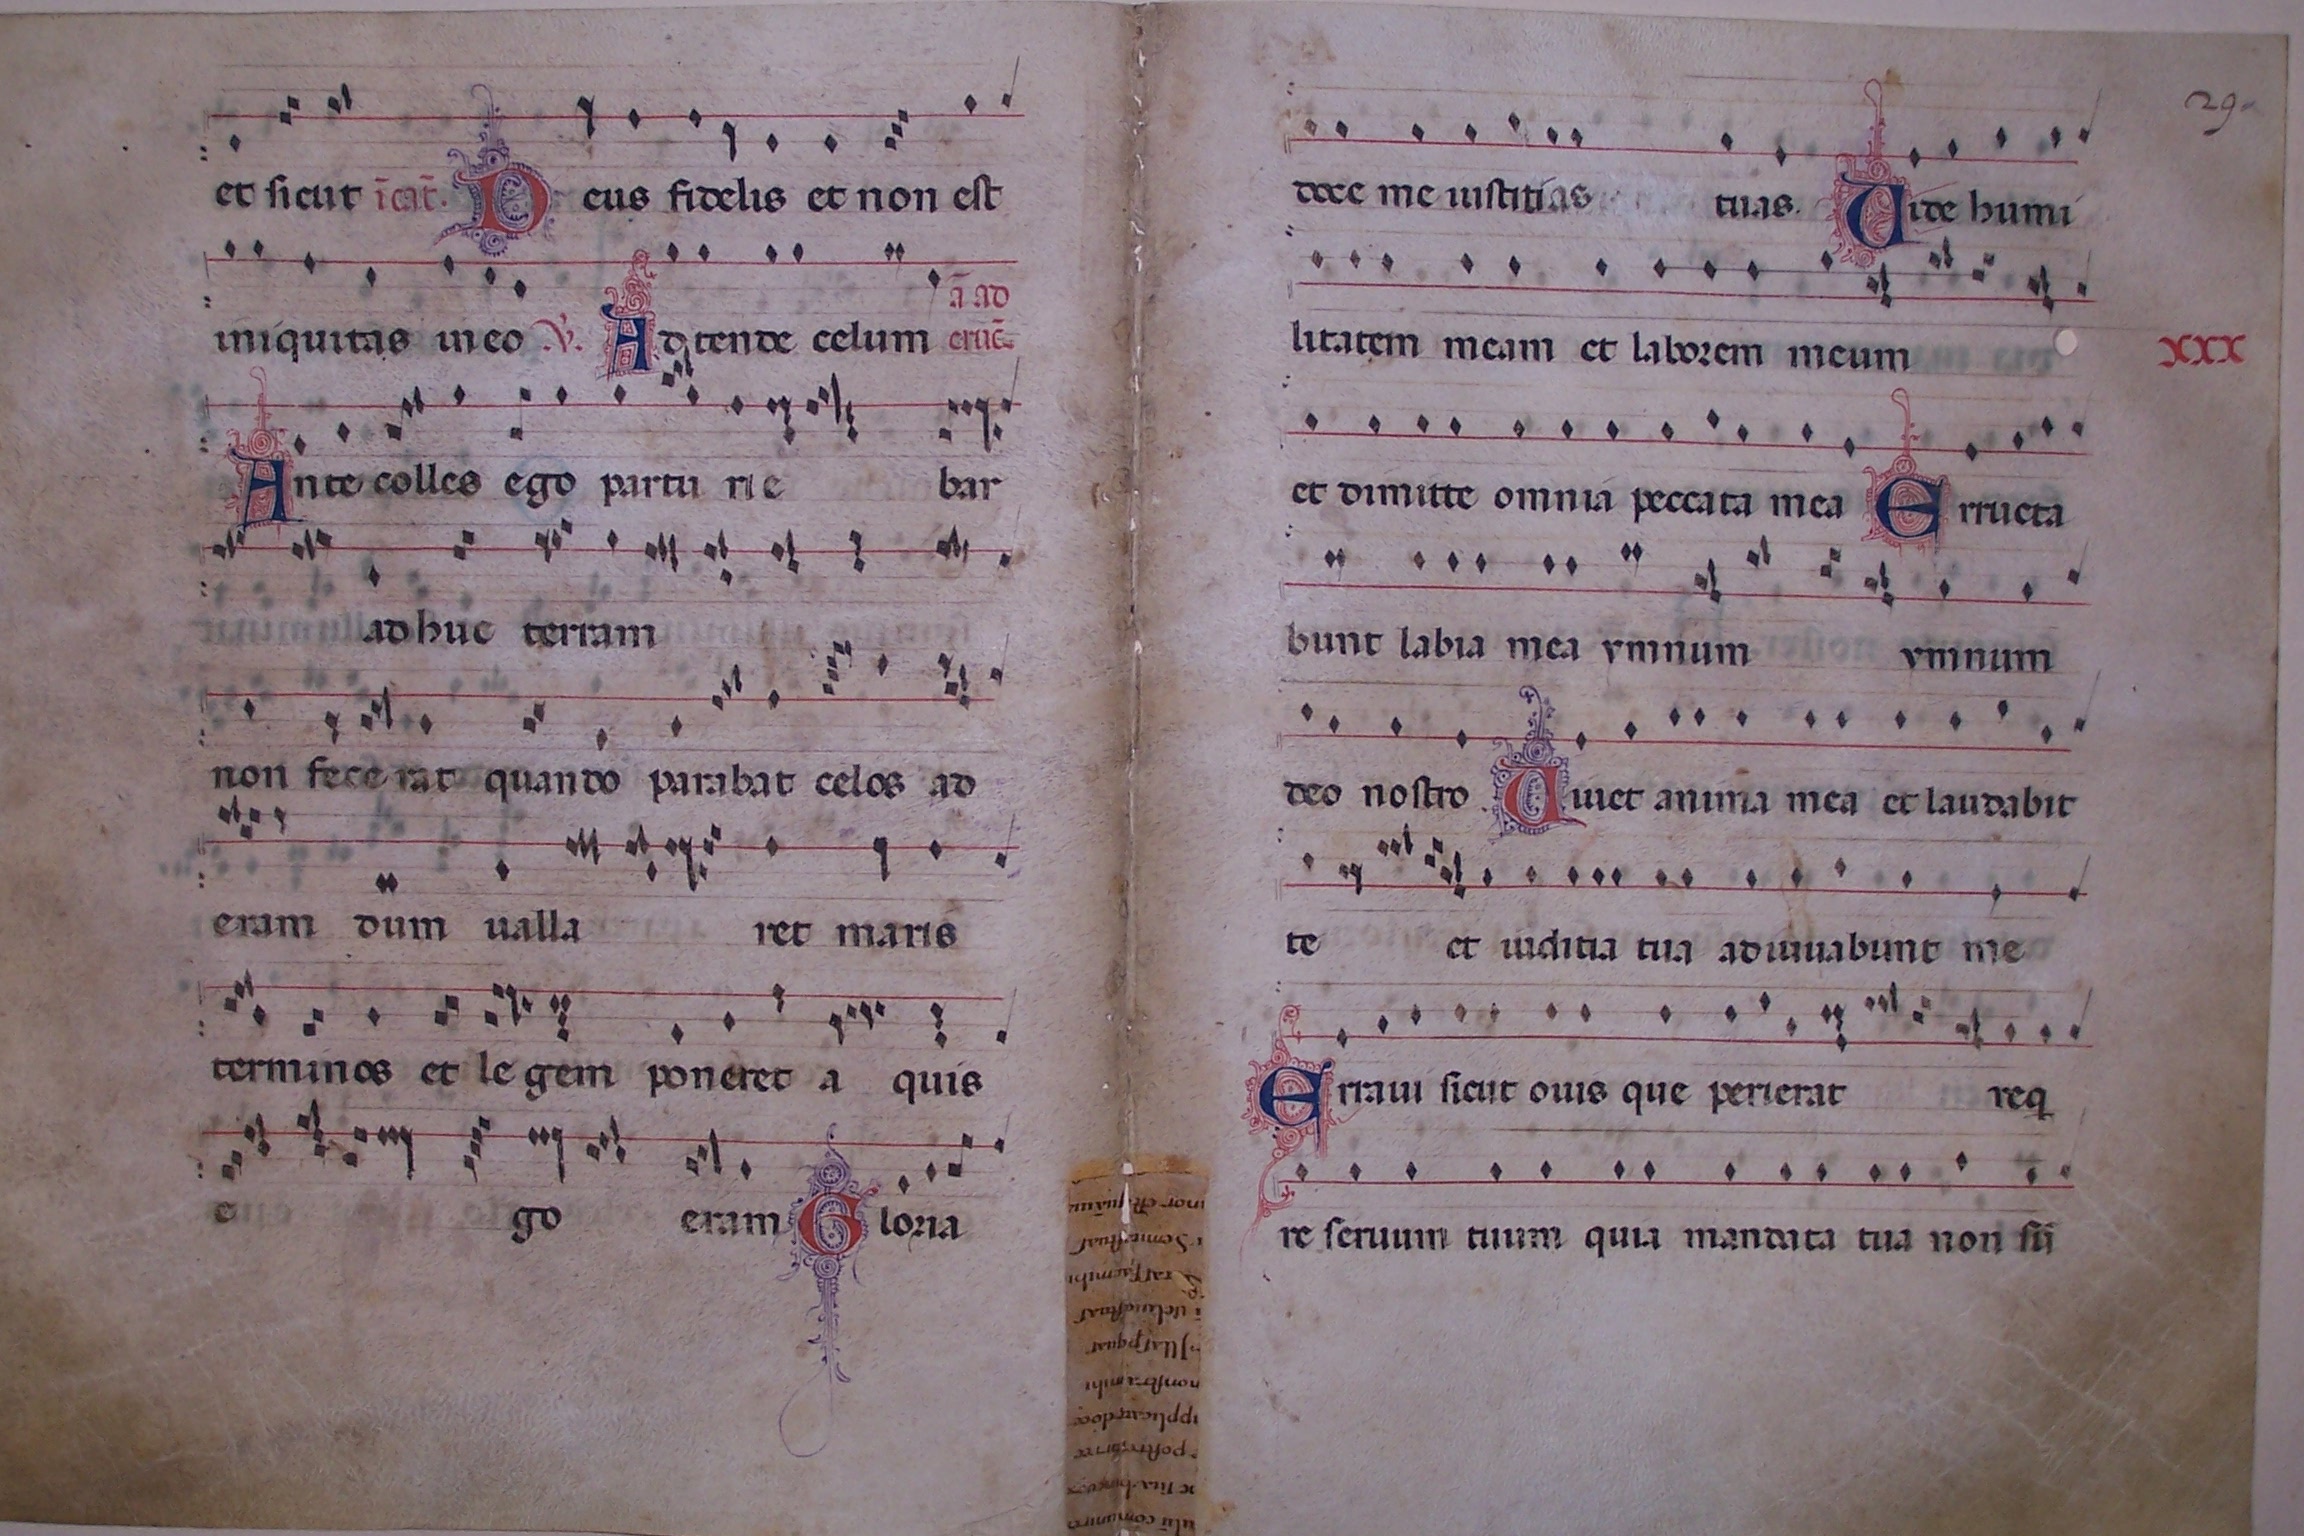 et sicut ĩcit̃. Deus fidelis et non est
iniquitas in eo V. Adtende celum ã ad
eruc̃
Ante colles ego partu rie bar
adhuc terram
non fece rat quando parabat celos ad
eram dum ualla ret maris
terminos et le gem poneret a quis
e go eram Gloria
29
doce me iustitias tuas. Uide humi
litatem meam et laborem meum
XXX
et dimitte omnia peccata mea Erructa
bunt labia mea ymnum ymnum
deo nostro Uiuet anima mea et laudabit
te et iuditia tua adiuuabunt me
Erraui sicut ouis que perierat req
re seruum tuum quia mandata tua non sũ